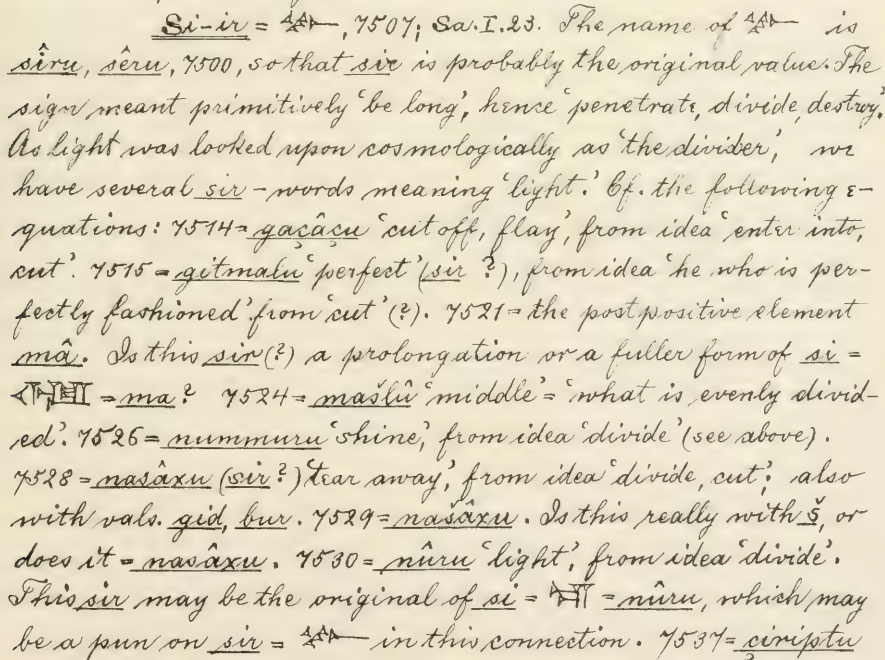 Si-ir = 𒁍, 7507; Sa. I. 23. The name of 𒁍 is
sîru, sêru, 7500, so that sir is probably the original value. The
sign meant primitively 'be long', hence 'penetrate, divide, destroy.'
As light was looked upon cosmologically as 'the divider,' we
have several sir-words meaning 'light.' Cf. the following e-
quations: 7514 = gaçâçu 'cut off, flay', from idea 'enter into,
cut'. 7515 = gitmalu 'perfect' (sir ?), from idea 'he who is per-
fectly fashioned' from 'cut' (?). 7521 = the postpositive element
mâ. Is this sir (?) a prolongation or a fuller form of si =
= ma? 7524 = mašlû 'middle' = 'what is evenly divid-
ed'. 7526 = nummuru 'shine,' from idea 'divide' (see above).
7528 = nasâxu (sir ?) 'tear away,' from idea 'divide, cut'; also
with vals. gid, bur. 7529 = našâxu. Is this really with š, or
does it = nasâxu. 7530 = nûru 'light', from idea 'divide'.
This sir may be the original of si = = nûru, which may
be a pun on sir = 𒁍 in this connection. 7537 = çiriptu